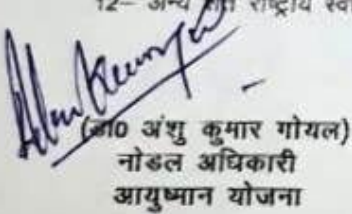 12– अन्य राष्ट्रीय
(डा0 अंशु कुमार गोयल)
नोडल अधिकारी
आयुष्मान योजना